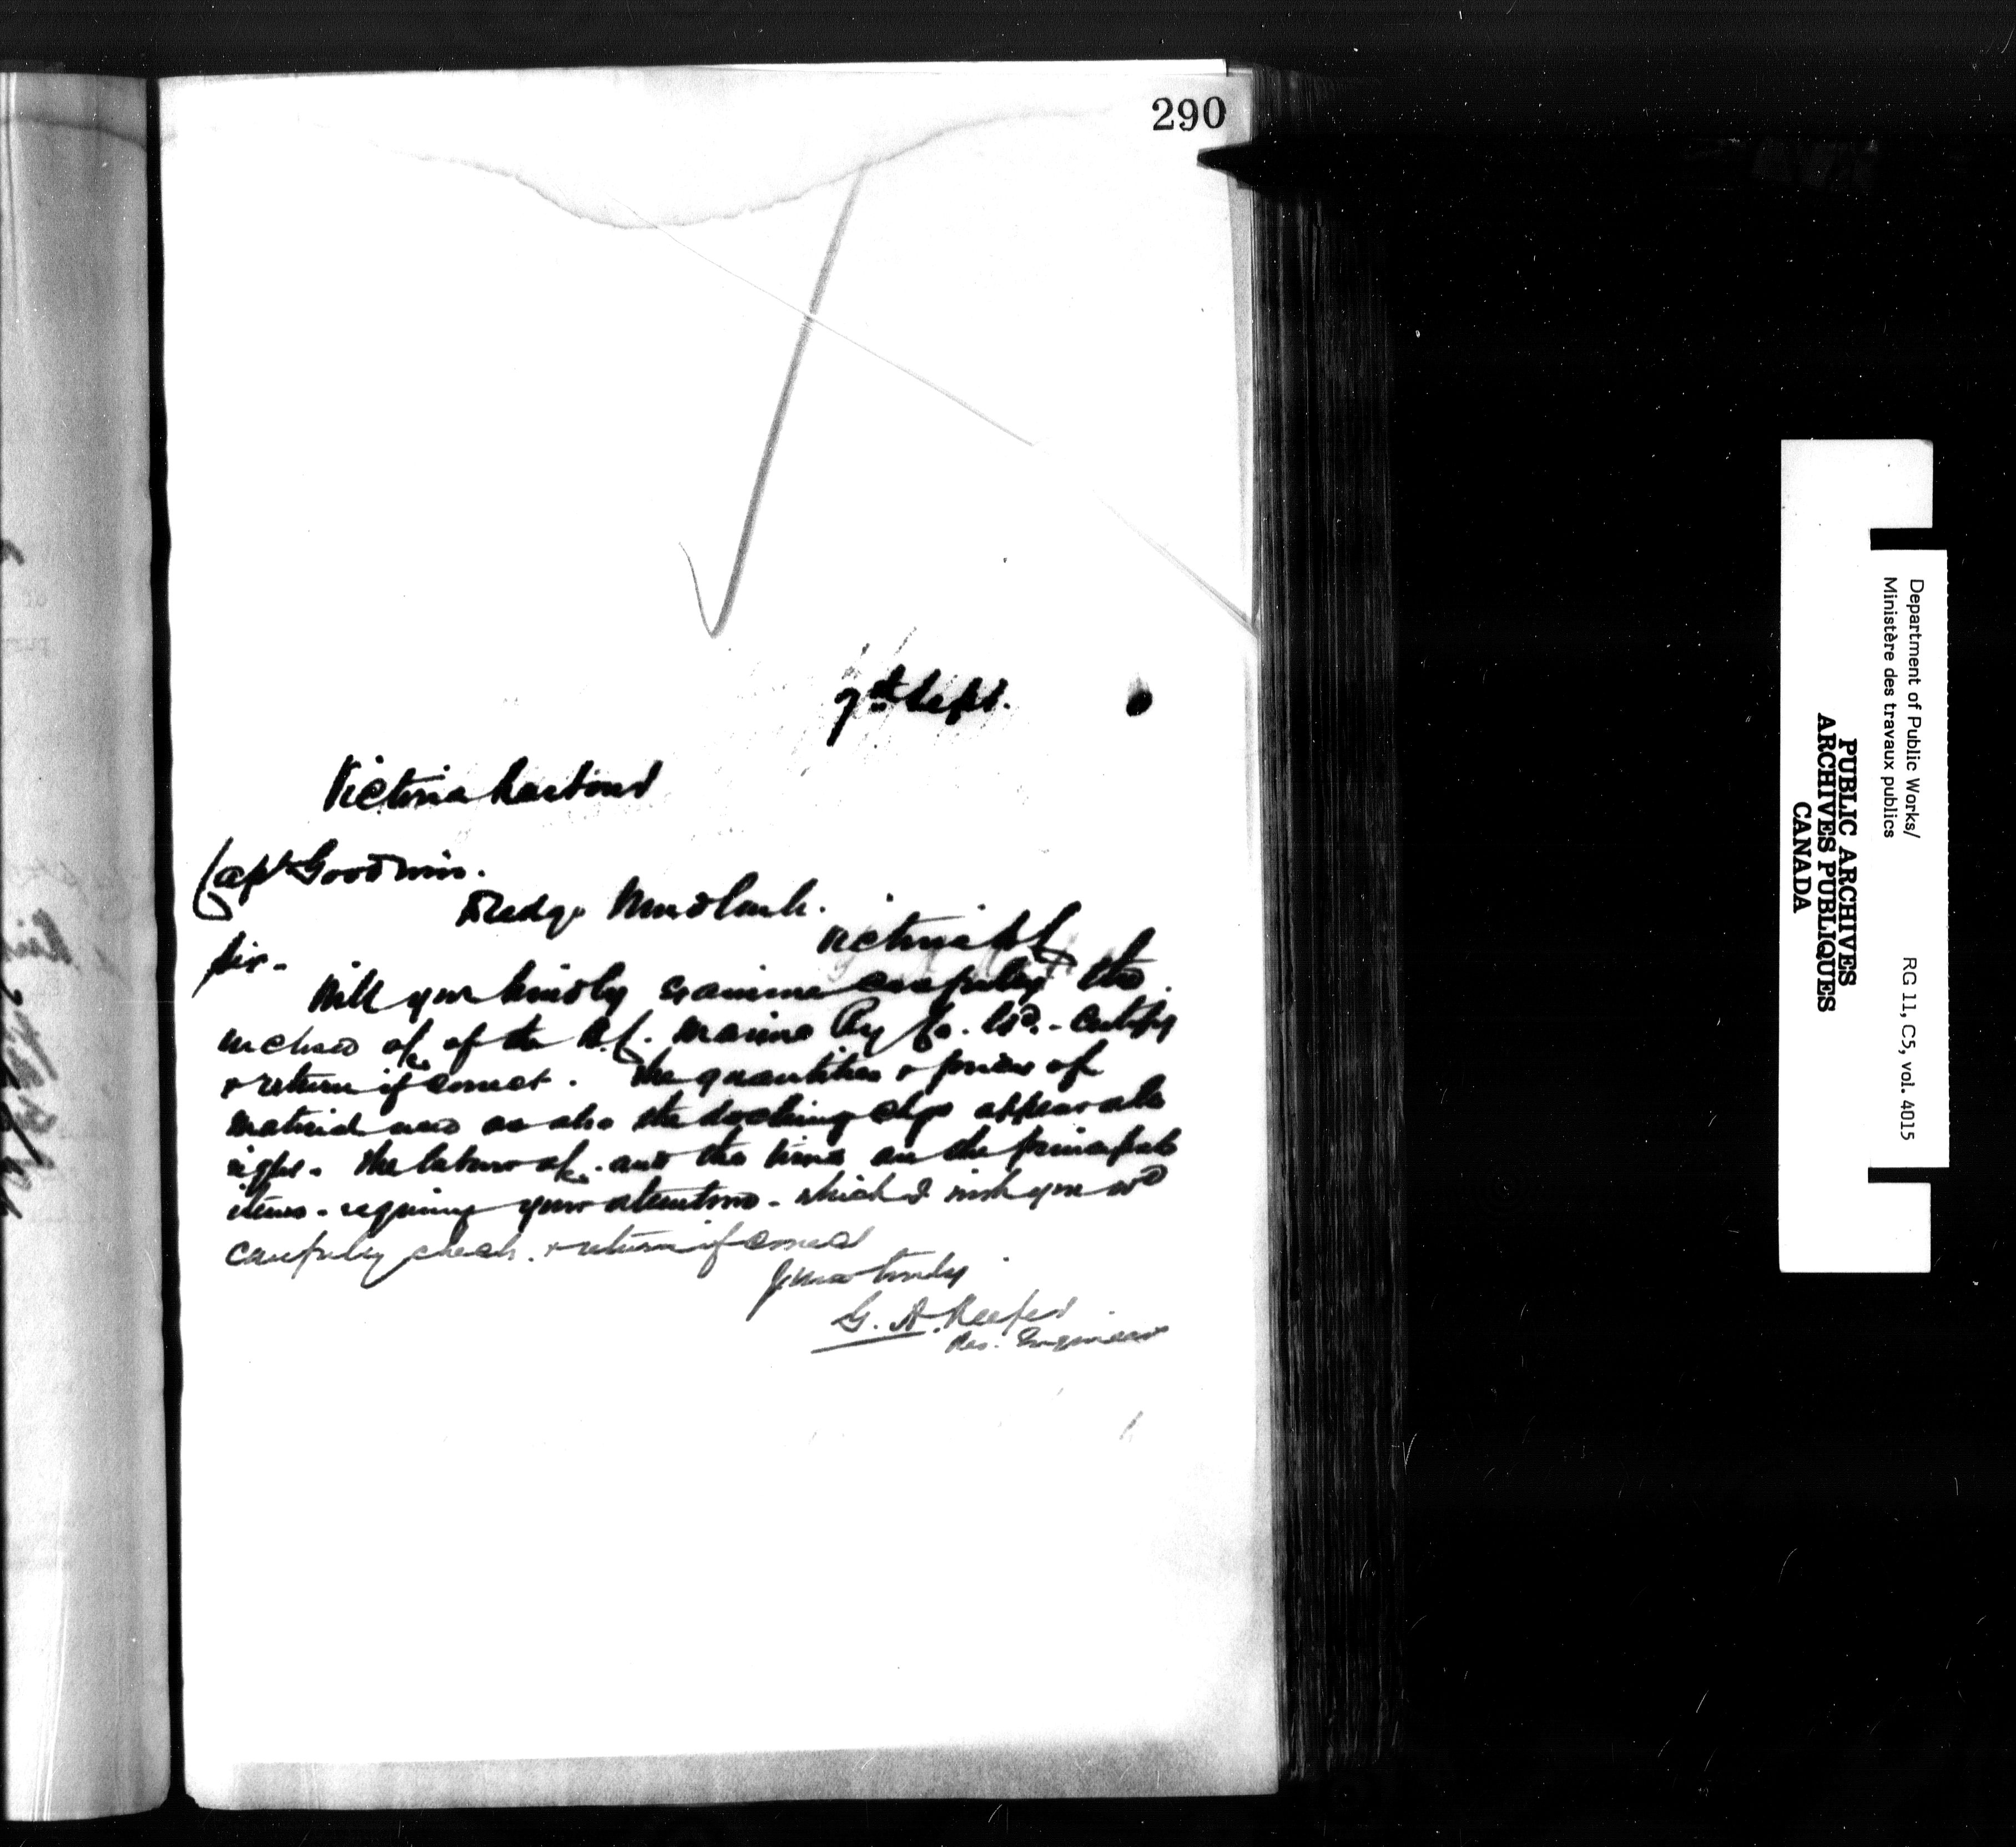 290
7th Sept.
Victoria Harbour
Capt Goodwin.
Dredge Mudlark.
Victoria B.C.
Sir -
Will you kindly examine carefully the
inclosed a/c of the B.C. Marine Ry Co. Ld. - certify
& return if correct. The quantities & prices of
material used as also the docking chgs appear all
right. The labour a/c. and the time are the principal
items - requiring your attention - which I wish you wd
carefully check & return if correct
Yours truly
G. A. Keefer
Res. Engineer
Department of Public Works/
Ministère des travaux publics
RG 11, C5, vol. 4015
PUBLIC ARCHIVES
ARCHIVES PUBLIQUES
CANADA